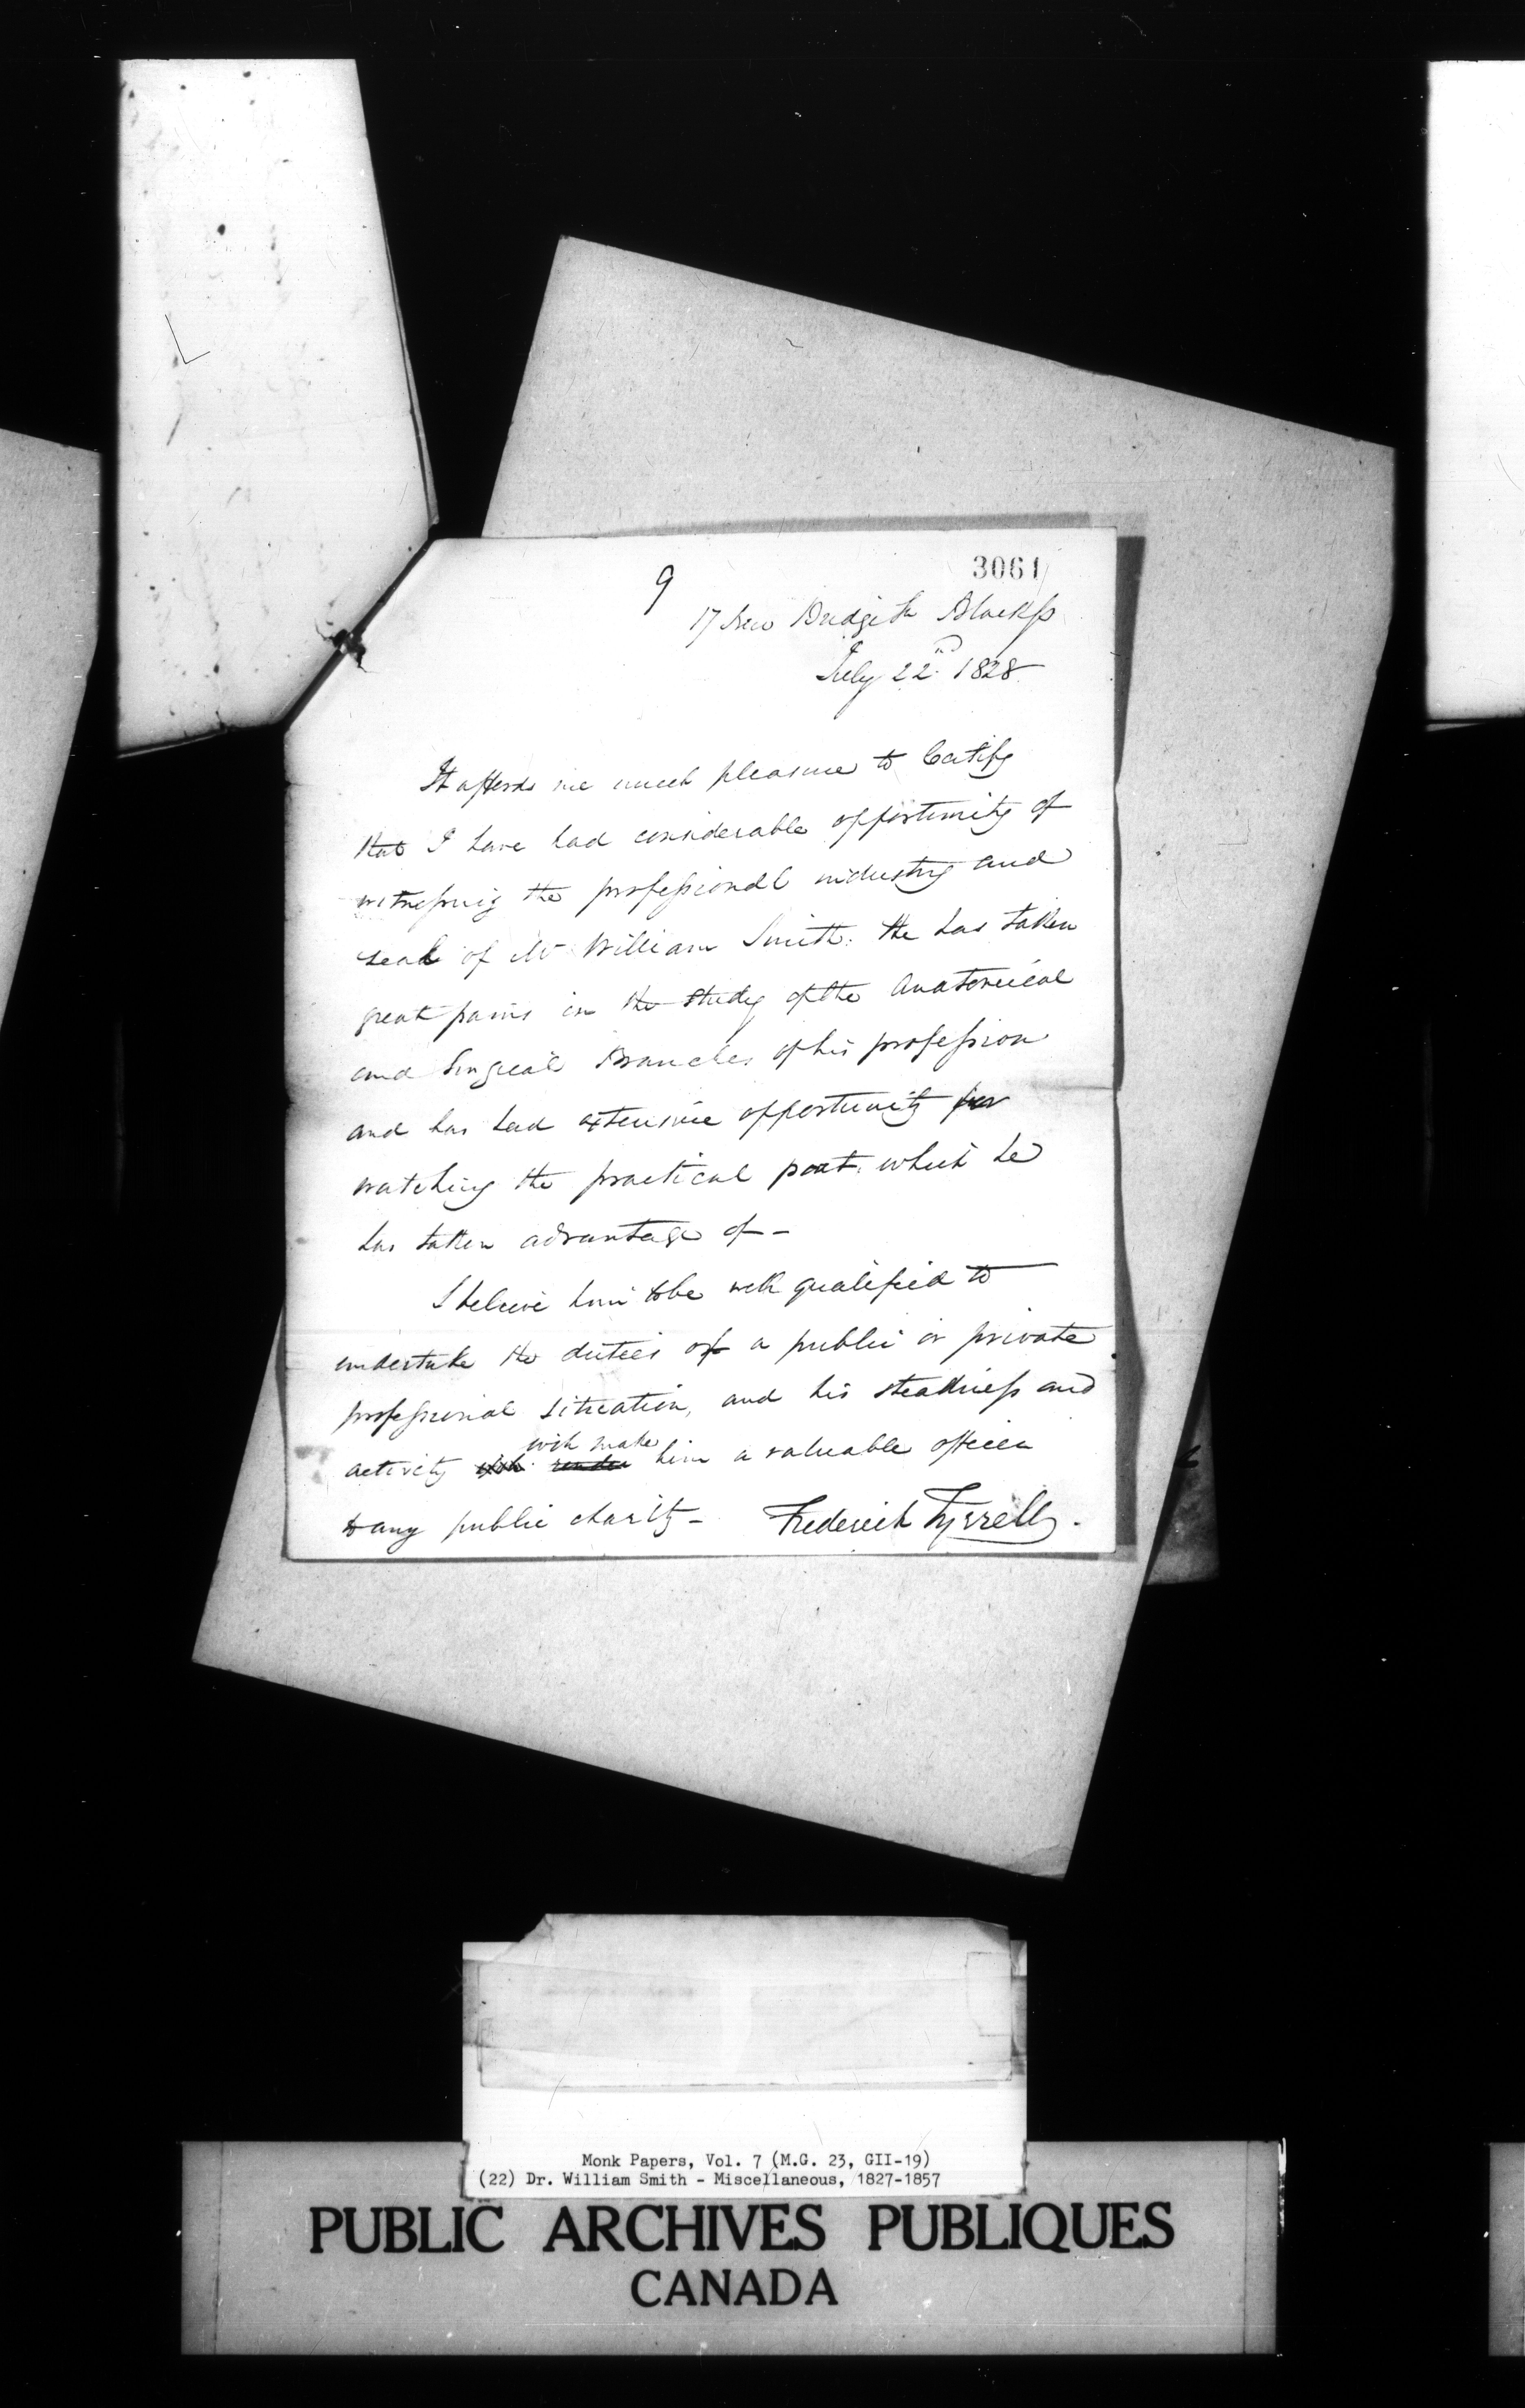 9
3061
17 New Bridge St Blackfs
July 22nd 1828
It affords me much pleasure to Certify
that I have had considerable opportunity of
witnessing the professional industry and
zeal of Mr William Smith. He has taken
great pains in the study of the Anatomical
and Surgical Branches of his profession
and has had extensive opportunity for
watching the practical part. which he
has taken advantage of -
I believe him to be well qualified to
undertake the duties of a public or private
professional situation, and his steadiness and
will make
activity will render him a valuable officer
to any public charity - Frederick Tyrrell.
Monk Papers, Vol. 7 (M.G. 23, GII-19)
(22) Dr. William Smith - Miscellaneous, 1827-1857
PUBLIC ARCHIVES PUBLIQUES
CANADA